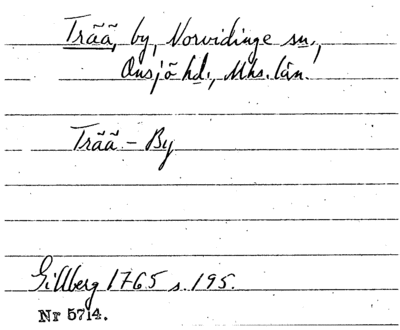 Trãã, by, Norvidinge sn.,
Onsjõ hd., Mhs. län.
Trãã - By
Gillberg 1765 s. 195.
Nr 5714.